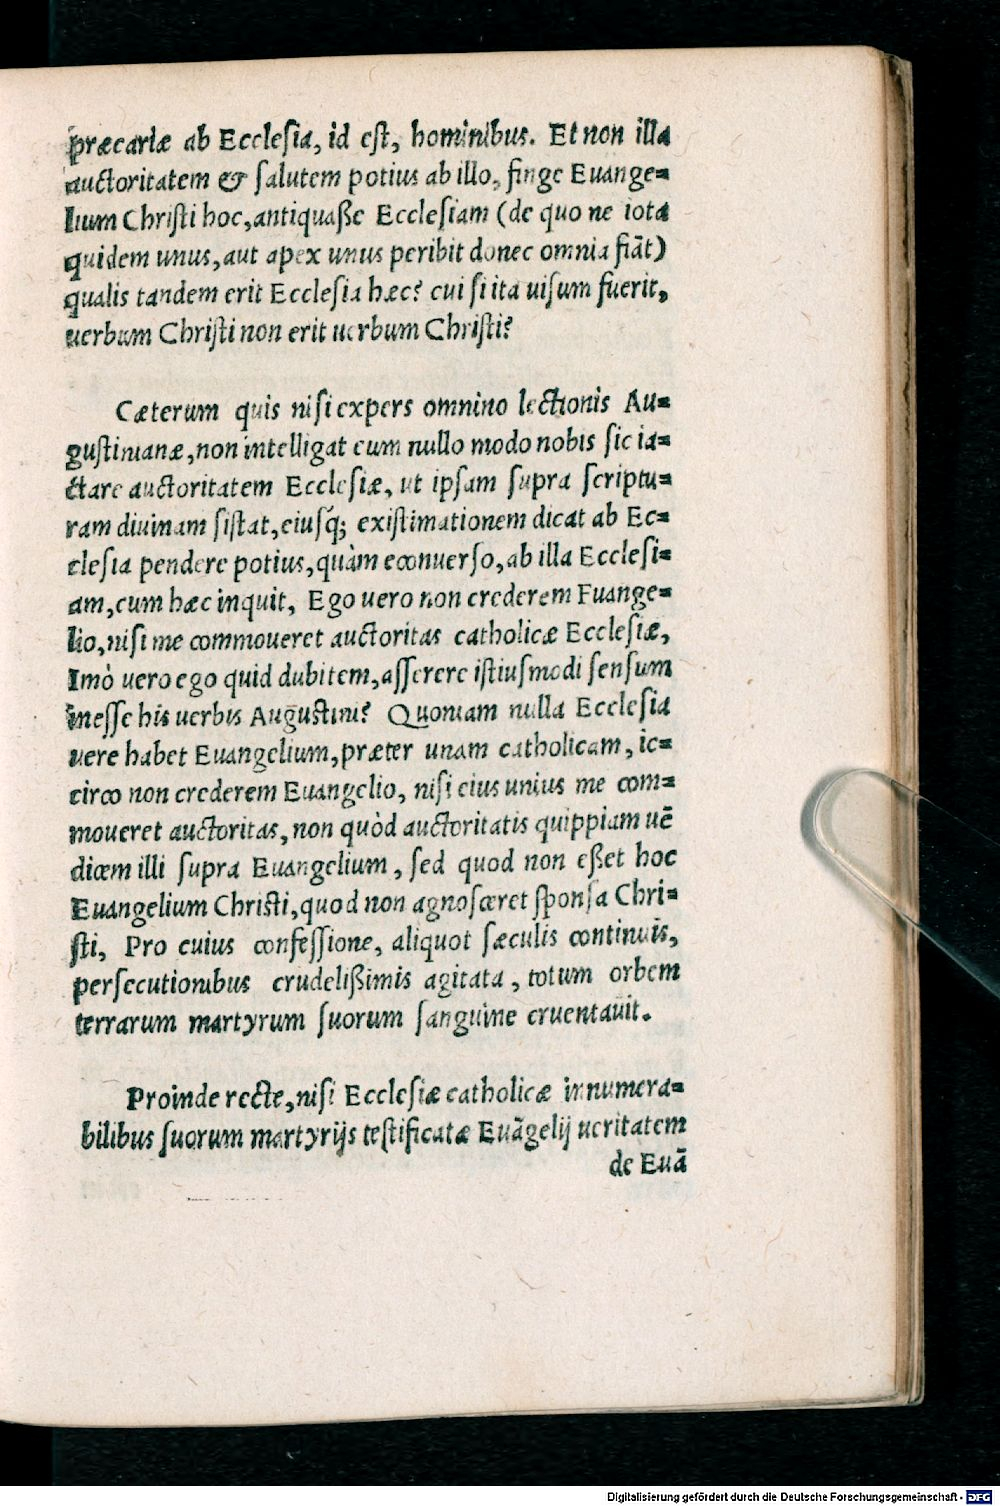 præcariæ ab Ecclesia, id est, hominibus. Et non illa
auctoritatem & salutem potius ab illo, finge Euange=
lium Christi hoc, antiquaße Ecclesiam (de quo ne iota
quidem unus, aut apex unus peribit donec omnia fiāt)
qualis tandem erit Ecclesia hæc? cui si ita uisum fuerit,
uerbum Christi non erit uerbum Christi?
Cæterum quis nisi expers omnino lectionis Au=
gustinianæ, non intelligat eum nullo modo nobis sic ia=
ctare auctoritatem Ecclesiæ, ut ipsam supra scriptu=
ram diuinam sistat, eiusq́; existimationem dicat ab Ec=
clesia pendere potius, quàm econuerso, ab illa Ecclesi=
am, cum hæc inquit, Ego uero non crederem Fuange=
lio, nisi me commoueret auctoritas catholicæ Ecclesiæ,
Imò uero ego quid dubitem, asserere istiusmodi sensum
inesse his uerbis Augustini? Quoniam nulla Ecclesia
uere habet Euangelium, præter unam catholicam, ic=
circo non crederem Euangelio, nisi eius unius me com=
moueret auctoritas, non quòd auctoritatis quippiam uē
dicem illi supra Euangelium, sed quod non eßet hoc
Euangelium Christi, quod non agnosceret sponsa Chri=
sti, Pro cuius confessione, aliquot sæculis continuis,
persecutionibus crudelißimis agitata, totum orbem
terrarum martyrum suorum sanguine cruentauit.
Proinde recte, nisi Ecclesiæ catholicæ innumera=
bilibus suorum martyrijs testificatæ Euāgelij ueritatem
de Euā
Digitalisierung gefördert durch die Deutsche Forschungsgemeinschaft - DFG